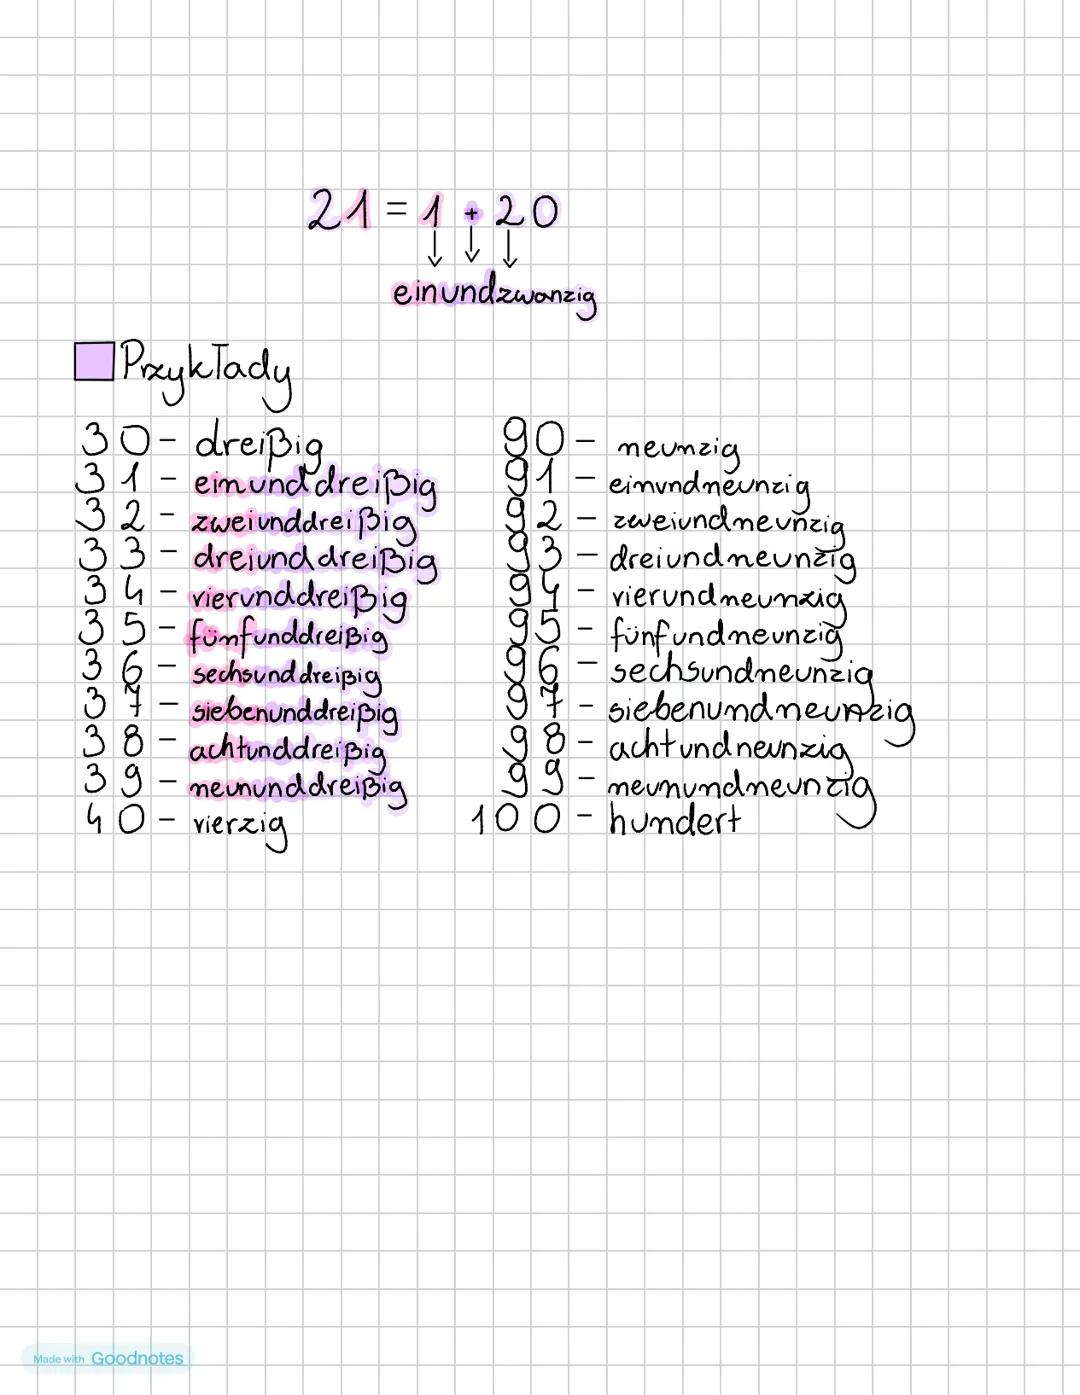 21 = 1 + 20
einundzwanzig
Przykłady
30 - dreißig
31 - einunddreißig
32 - zweiunddreißig
33 - dreiunddreißig
34 - vierunddreißig
35 - fünfunddreißig
36 - sechsunddreißig
37 - siebenunddreißig
38 - achtunddreißig
39 - neununddreißig
40 - vierzig
90 - neunzig
91 - einundneunzig
92 - zweiundneunzig
93 - dreiundneunzig
94 - vierundneunzig
95 - fünfundneunzig
96 - sechsundneunzig
97 - siebenundneunzig
98 - achtundneunzig
99 - neunundneunzig
100 - hundert
Made with Goodnotes